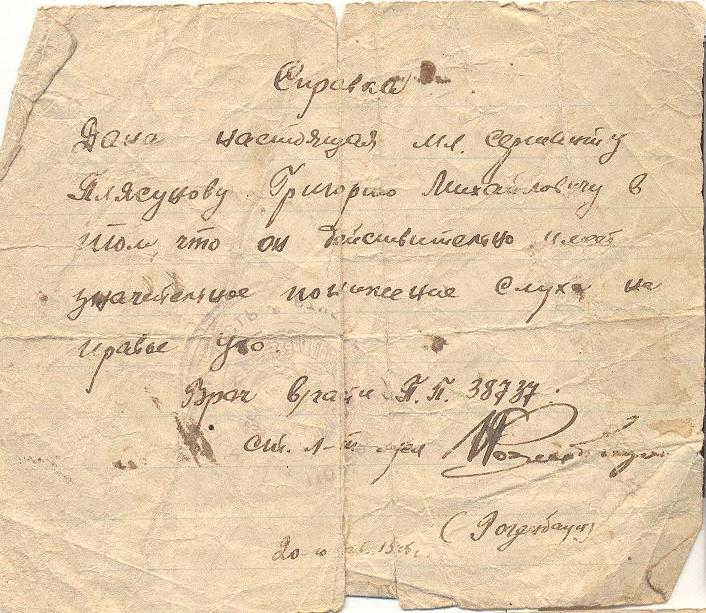 Справка
Дана настоящая мл. сержанту
Плясунову Григорию Михайловичу в
том, что он действительно имеет
значительное понижение слуха на
правое ухо.
Врач части П.П. 38737.
ст. л-т м/с
20